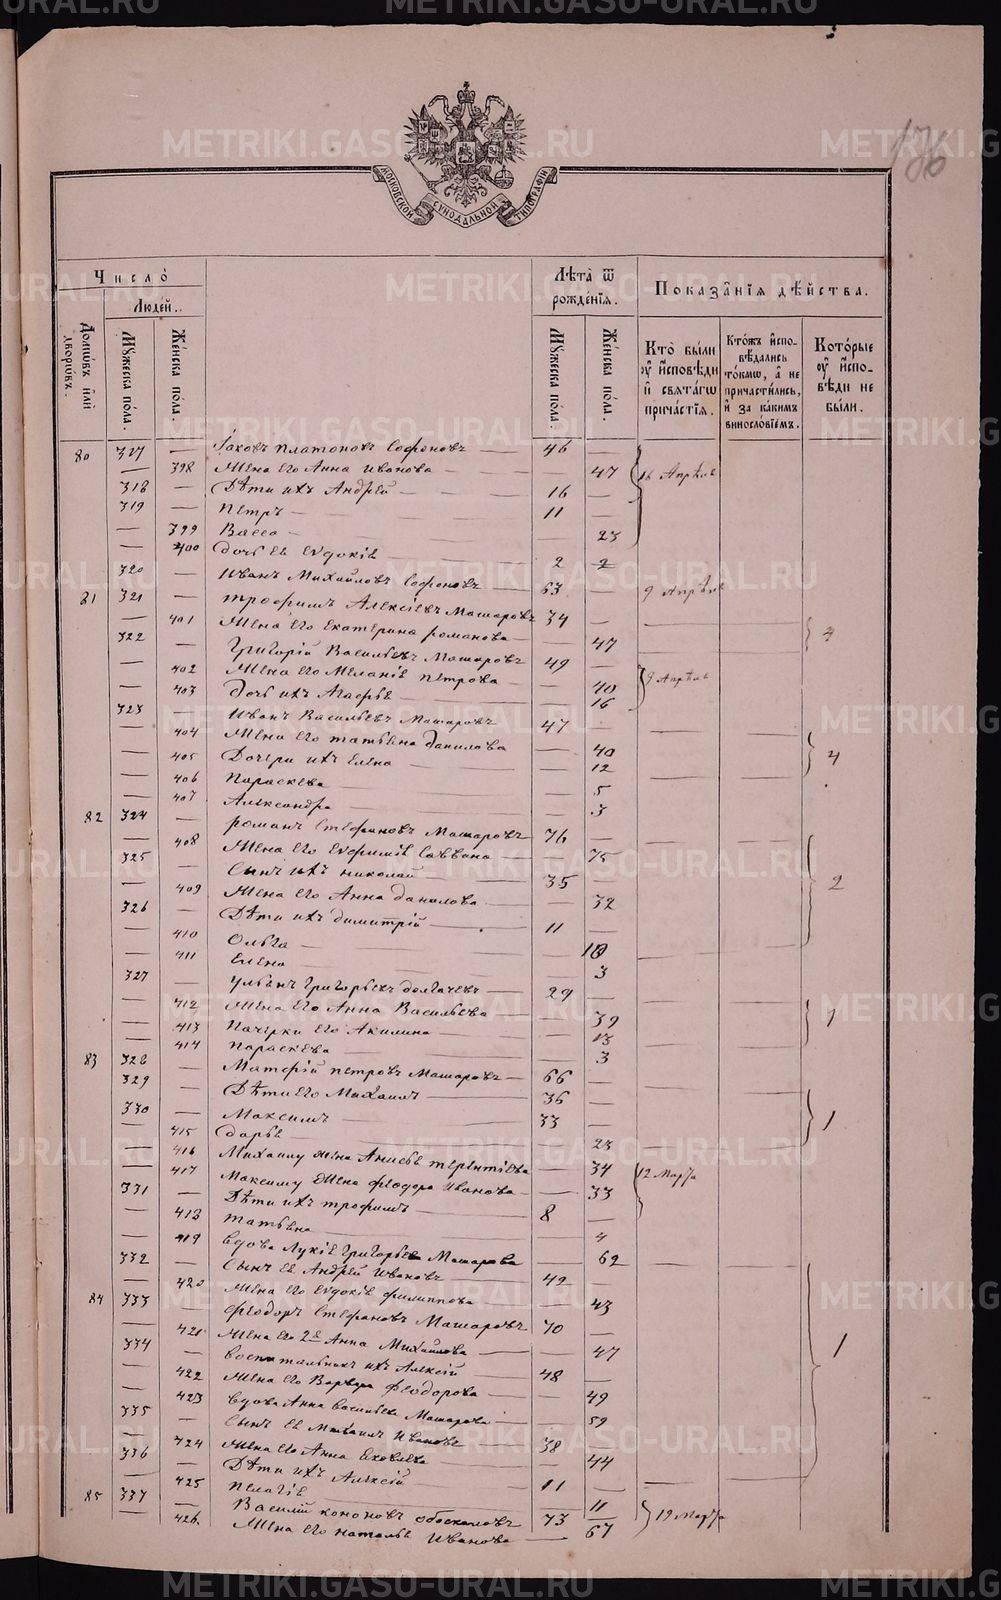 136
МОСКОВСКОЙ СѴНОДАЛЬНОЙ ТИПОГРАФІИ
Число̀
Людей.
Лѣта̀ ѿ рожде́нїѧ.
Показа̑нїѧ дѣ́йства.
Домѡ́въ и҆лѝ дворѡ́въ.
Мꙋ́жеска по́ла.
Же́нска по́ла.
Мꙋ́жеска по́ла.
Же́нска по́ла.
Кто̀ бы́ли ᲂу҆ и҆́сповѣди и҆ свѧта́гѡ прича́стїѧ.
Кто́жъ и҆спо­вѣ́дались то́кмѡ, а҆ не причасти́лись, и҆ за каки́мъ винословїемъ.
Кото́рые ᲂу҆ и҆́спо­вѣди не бы́ли.
80 317 — Іаковъ Платоновъ Софоновъ — 46
— 398 Жена его Анна Иванова — 47 16 Апрѣля
318 — Дѣти ихъ Андрей — 16 —
319 — Петръ — 11 —
— 399 Васса — 23
— 400 Дочь ея Евдокія 2 2
320 — Иванъ Михайловъ Софоновъ — 63 — 9 Апрѣля
81 321 — Трофимъ Алексіевъ Машаровъ 34 —
— 401 Жена его Екатерина Романова — 47 4
322 — Григорій Васильевъ Машаровъ 49 —
— 402 Жена его Меланія Петрова — 40 9 Апрѣля
— 403 Дочь ихъ Агафья — 16
323 — Иванъ Васильевъ Машаровъ 47 —
— 404 Жена его Татьяна Данилова — 40
— 405 Дочери ихъ Елена — 12 4
— 406 Параскева — 5
— 407 Александра — 3
82 324 — Романъ Стефановъ Машаровъ 76 —
— 408 Жена его Евфимія Саввина — 75
325 — Сынъ ихъ Николай — 35 — 2
— 409 Жена его Анна Данилова — 32
326 — Дѣти ихъ Димитрій — 11 —
— 410 Ольга — 10
— 411 Елена — 3
327 — Ульянъ Григорьевъ Долгачевъ — 29 —
— 412 Жена его Анна Васильева — 39 1
— 413 Пачерки его Акилина — 13
— 414 Параскева — 3
83 328 — Матфій Петровъ Машаровъ — 66 —
329 — Дѣти его Михаилъ — 36 —
330 — Максимъ — 33 — 1
— 415 Дарья — 23
— 416 Михаилу жена Анисья Терентіева — 34 12 Мар/та
— 417 Максиму жена Феодора Иванова — 33
331 — Дѣти ихъ Трофимъ — 8 —
— 418 Татьяна — 4
— 419 Вдова Лукія Григорьева Машарова — 62
332 — Сынъ ея Андрей Ивановъ — 42 —
— 420 Жена его Евдокія Филиппова — 43
84 333 — Феодоръ Стефановъ Машаровъ 70 —
— 421 Жена его 2я Анна Михайлова — 47 1
334 — Воспитальникъ ихъ Алексій — 48 —
— 422 Жена его Варвара Феодорова — 49
— 423 Вдова Анна Васильева Машарова — 59
335 — Сынъ ея Михаилъ Ивановъ — 38 —
— 424 Жена его Анна Яковлева — 44
336 — Дѣти ихъ Алексій — 11 —
— 425 Пелагія — 11
85 337 — Василій Кононовъ 73 — 19 Мар/та
— 426 Жена его Наталья Иванова — 67
METRIKI.GASO-URAL.RU